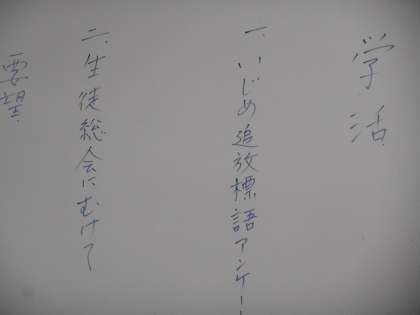 学活
一、いじめ追放標語アンケー
二、生徒総会にむけて
要望